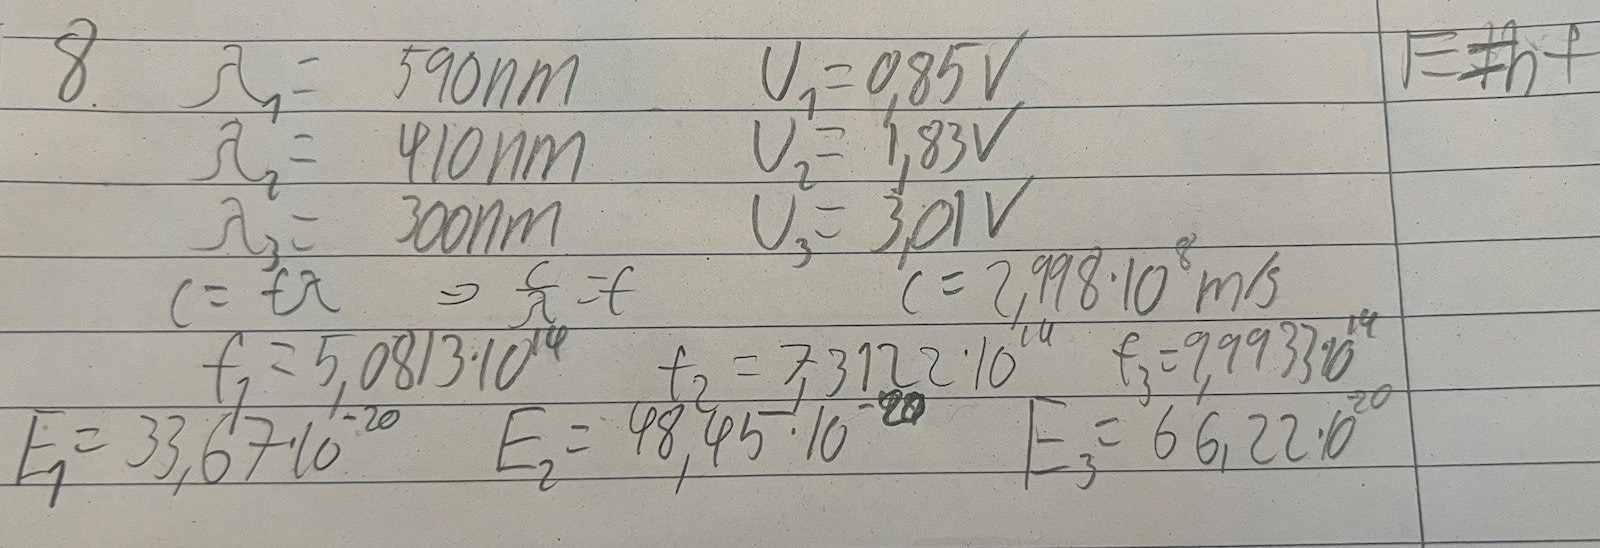 8. λ₁ = 590nm U₁ = 0,85V E=hf
λ₂ = 410nm U₂ = 1,83V
λ₃ = 300nm U₃ = 3,01V
c = fλ ⇒ c/λ = f c = 2,998·10⁸ m/s
f₁ = 5,0813·10¹⁴ f₂ = 7,3122·10¹⁴ f₃ = 9,9933·10¹⁴
E₁ = 33,67·10⁻²⁰ E₂ = 48,45·10⁻²⁰ E₃ = 66,22·10⁻²⁰